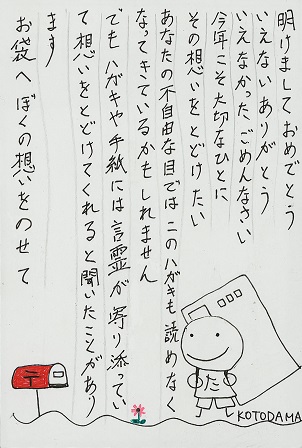 明けましておめでとう
いえないありがとう
いえなかった、ごめんなさい
今年こそ大切なひとに
その想いをとどけたい
あなたの不自由な目ではこのハガキも読めなく
なってきているかもしれません
でもハガキや手紙には言霊が寄り添ってい
て想いをとどけてくれると聞いたことがあり
ます
お袋へぼくの想いをのせて
〒
た
KOTODAMA